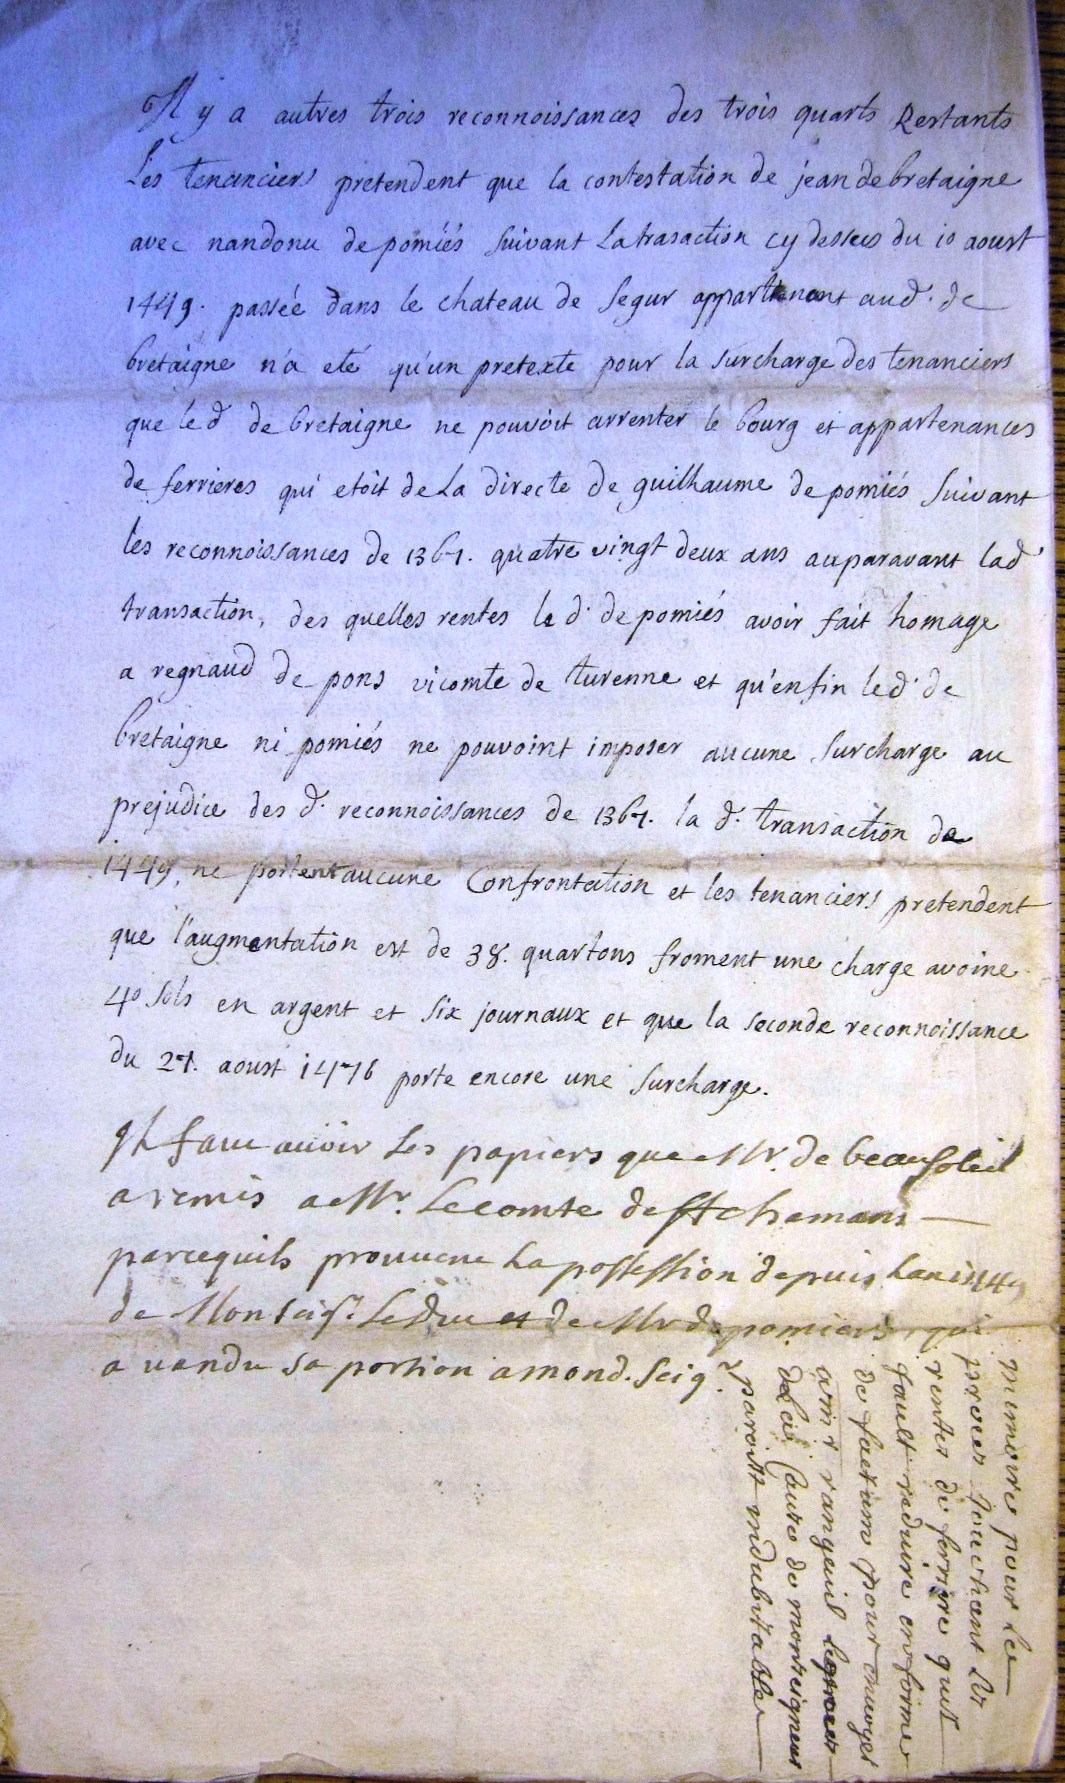 Il y a autres trois reconnoissances des trois quarts Restants
Les tenanciers pretendent que la contestation de jean de bretaigne
avec nandonu de pomiés suivant La trasaction cy dessus du 10 aoust
1449. passée dans le chateau de segur appartenant aud. de
bretaigne n'a eté qu'un pretexte pour la surcharge des tenanciers
que le d de bretaigne ne pouvoit arrenter le bourg et appartenances
de ferrieres qui etoit de La directe de guilhaume de pomiés suivant
les reconnoissances de 1367. quatre vingt deux ans auparavant lad
transaction, des quelles rentes le d. de pomiés avoir fait homage
a regnaud de pons vicomte de turenne et qu'enfin led. de
bretaigne ni pomiés ne pouvoint imposer aucune surcharge au
prejudice des d. reconnoissances de 1367. la d. transaction de
1449, ne portent aucune Confrontation et les tenanciers pretendent
que l'augmentation est de 38. quartons froment une charge avoine
40 sols en argent et six journaux et que la seconde reconnoissance
du 27. aoust 1476 porte encore une surcharge.
Il faut auoir Les papiers que Mr. de beausoleil
a remis a Mr. Le comte de
parcequils prouuene La possession depuis Lan 1449
de Monseigr. Le Duc et de Mr de pomiers qui
a uandu sa portion a mond. seigr.
memoire pour le
proces touchant les
rentes de ferriere quil
fault reduire en forme
de factum pour enuoyer
a mr rangeuil
de La Cause de monseigneur
paroist indubitable